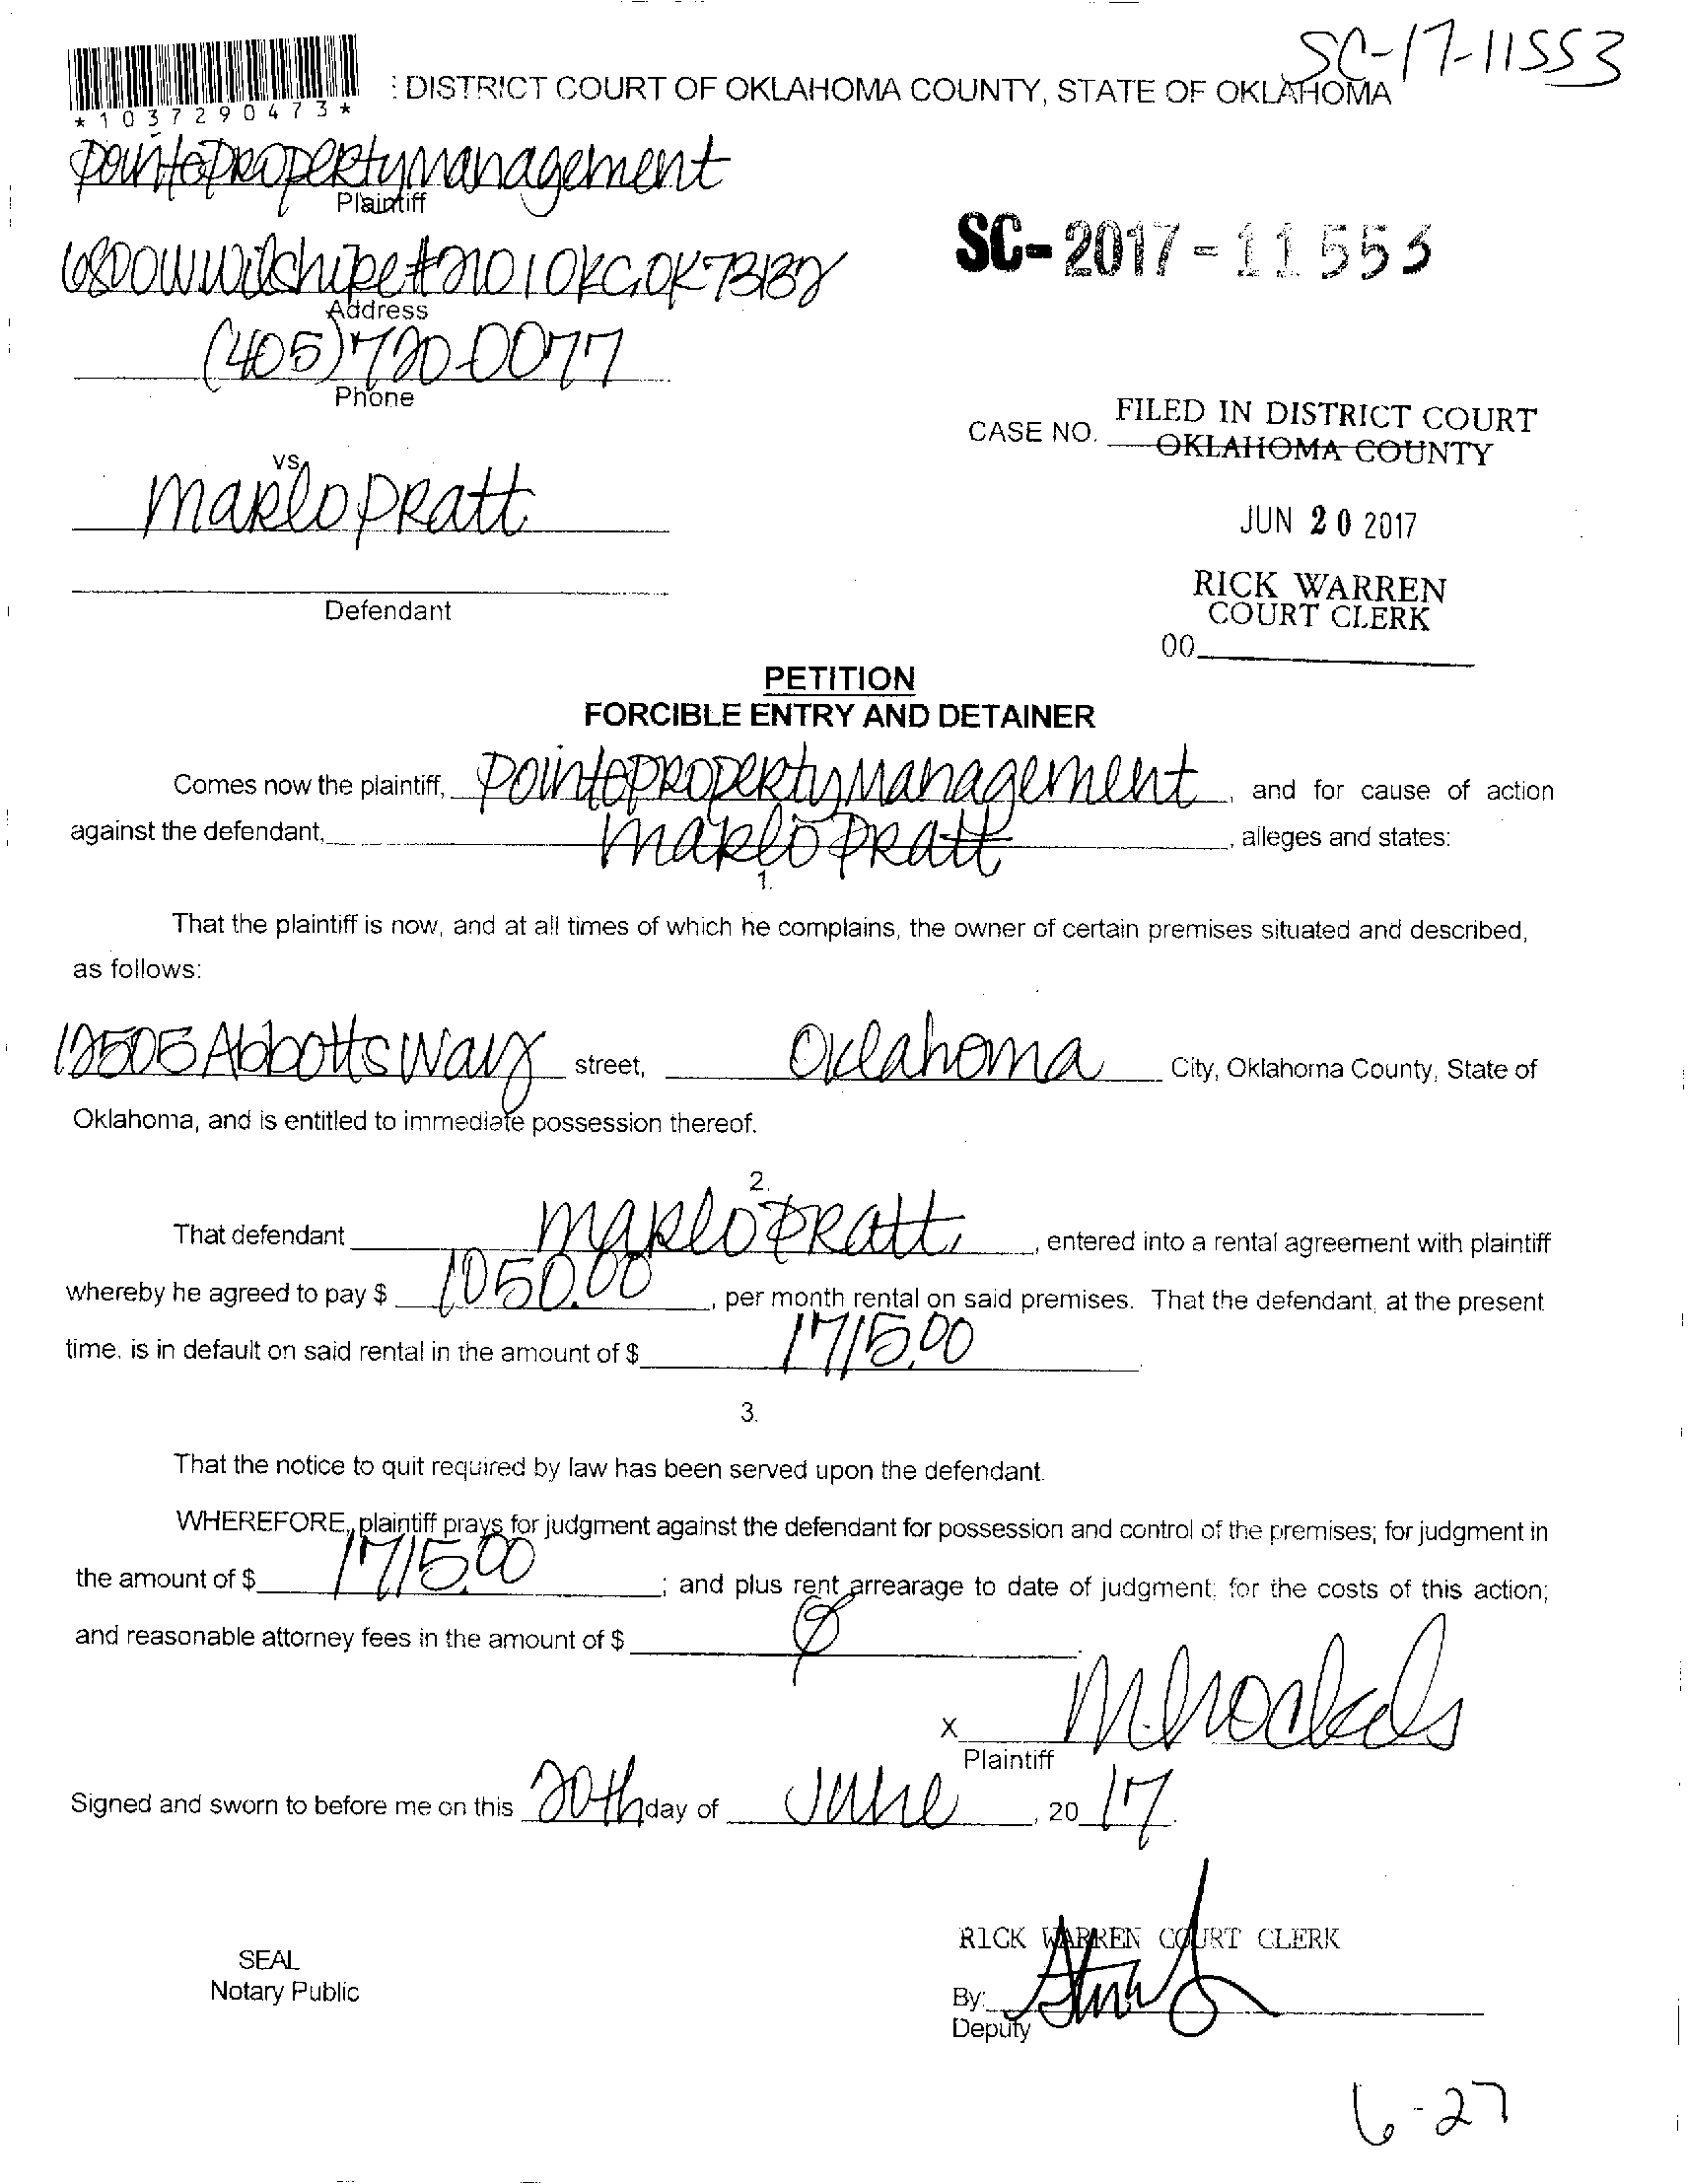 SC-17-11553
: DISTRICT COURT OF OKLAHOMA COUNTY, STATE OF OKLAHOMA
*1037290473*
Pointe Property Management
Plaintiff
6800 W Wilshire #210 | OKC, OK 73132
Address
SC-2017-11553
(405) 720-0077
Phone
CASE NO. FILED IN DISTRICT COURT
OKLAHOMA COUNTY
vs.
Marlo Pratt
JUN 20 2017
Defendant
RICK WARREN
COURT CLERK
00
PETITION
FORCIBLE ENTRY AND DETAINER
Comes now the plaintiff, Pointe Property Management, and for cause of action
against the defendant, Marlo Pratt, alleges and states:
1.
That the plaintiff is now, and at all times of which he complains, the owner of certain premises situated and described,
as follows:
12505 Abbotts Way street, Oklahoma City, Oklahoma County, State of
Oklahoma, and is entitled to immediate possession thereof.
2.
That defendant Marlo Pratt, entered into a rental agreement with plaintiff
whereby he agreed to pay $ 1050.00, per month rental on said premises. That the defendant, at the present
time, is in default on said rental in the amount of $ 1715.00
3.
That the notice to quit required by law has been served upon the defendant.
WHEREFORE, plaintiff prays for judgment against the defendant for possession and control of the premises; for judgment in
the amount of $ 1715.00; and plus rent arrearage to date of judgment; for the costs of this action;
and reasonable attorney fees in the amount of $
X
Plaintiff
Signed and sworn to before me on this 20th day of June, 20 17
RICK WARREN COURT CLERK
SEAL
Notary Public
By:
Deputy
6-27